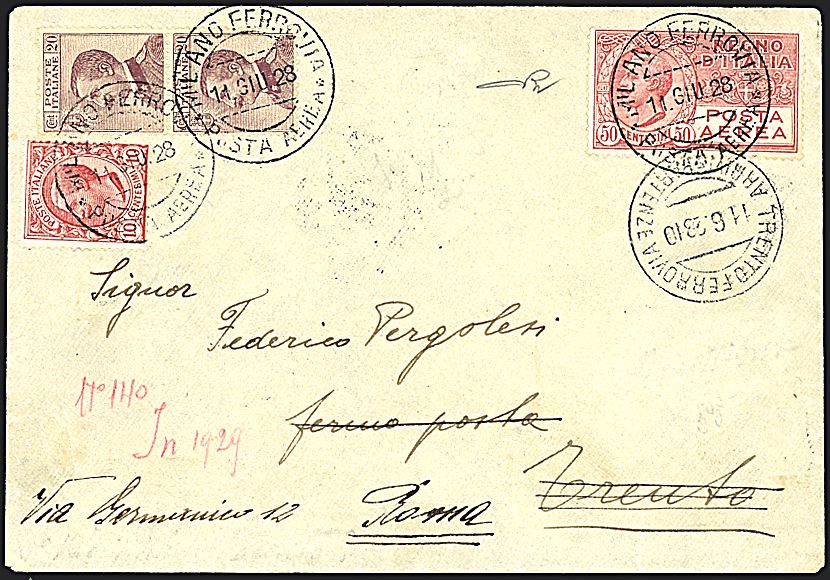 Cent 20
POSTE ITALIANE
20
MILANO FERROVIA
11.GIU.28
POSTA AEREA
MILANO FERROVIA
11.GIU.28
POSTA AEREA
REGNO
D'ITALIA
50 CENTESIMI 50
POSTA
AEREA
FERROV
28
AEREA
POSTE ITALIANE
10 CENTESIMI 10
TRENTO FERROVIA
ARRIVI PARTENZE
11.6.28 10
Signor
Federico Pergolesi
N° 1140
fermo posta
In 1929
Trento
Via Germanico 12 Roma